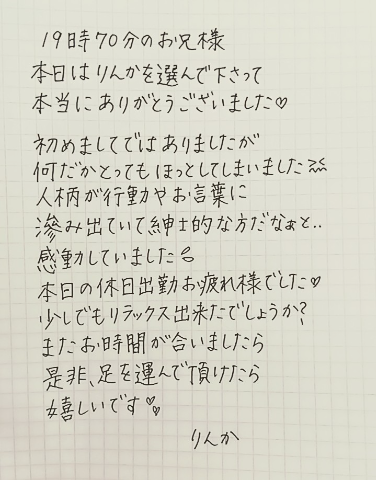 19時70分のお兄様
本日はりんかを選んで下さって
本当にありがとうございました♡
初めましてではありましたが
何だかとってもほっとしてしまいました
人柄が行動やお言葉に
滲み出ていて紳士的な方だなぁと..
感動していました
本日の休日出勤お疲れ様でした♡
少しでもリラックス出来たでしょうか?
またお時間が合いましたら
是非、足を運んで頂けたら
嬉しいです♡
りんか